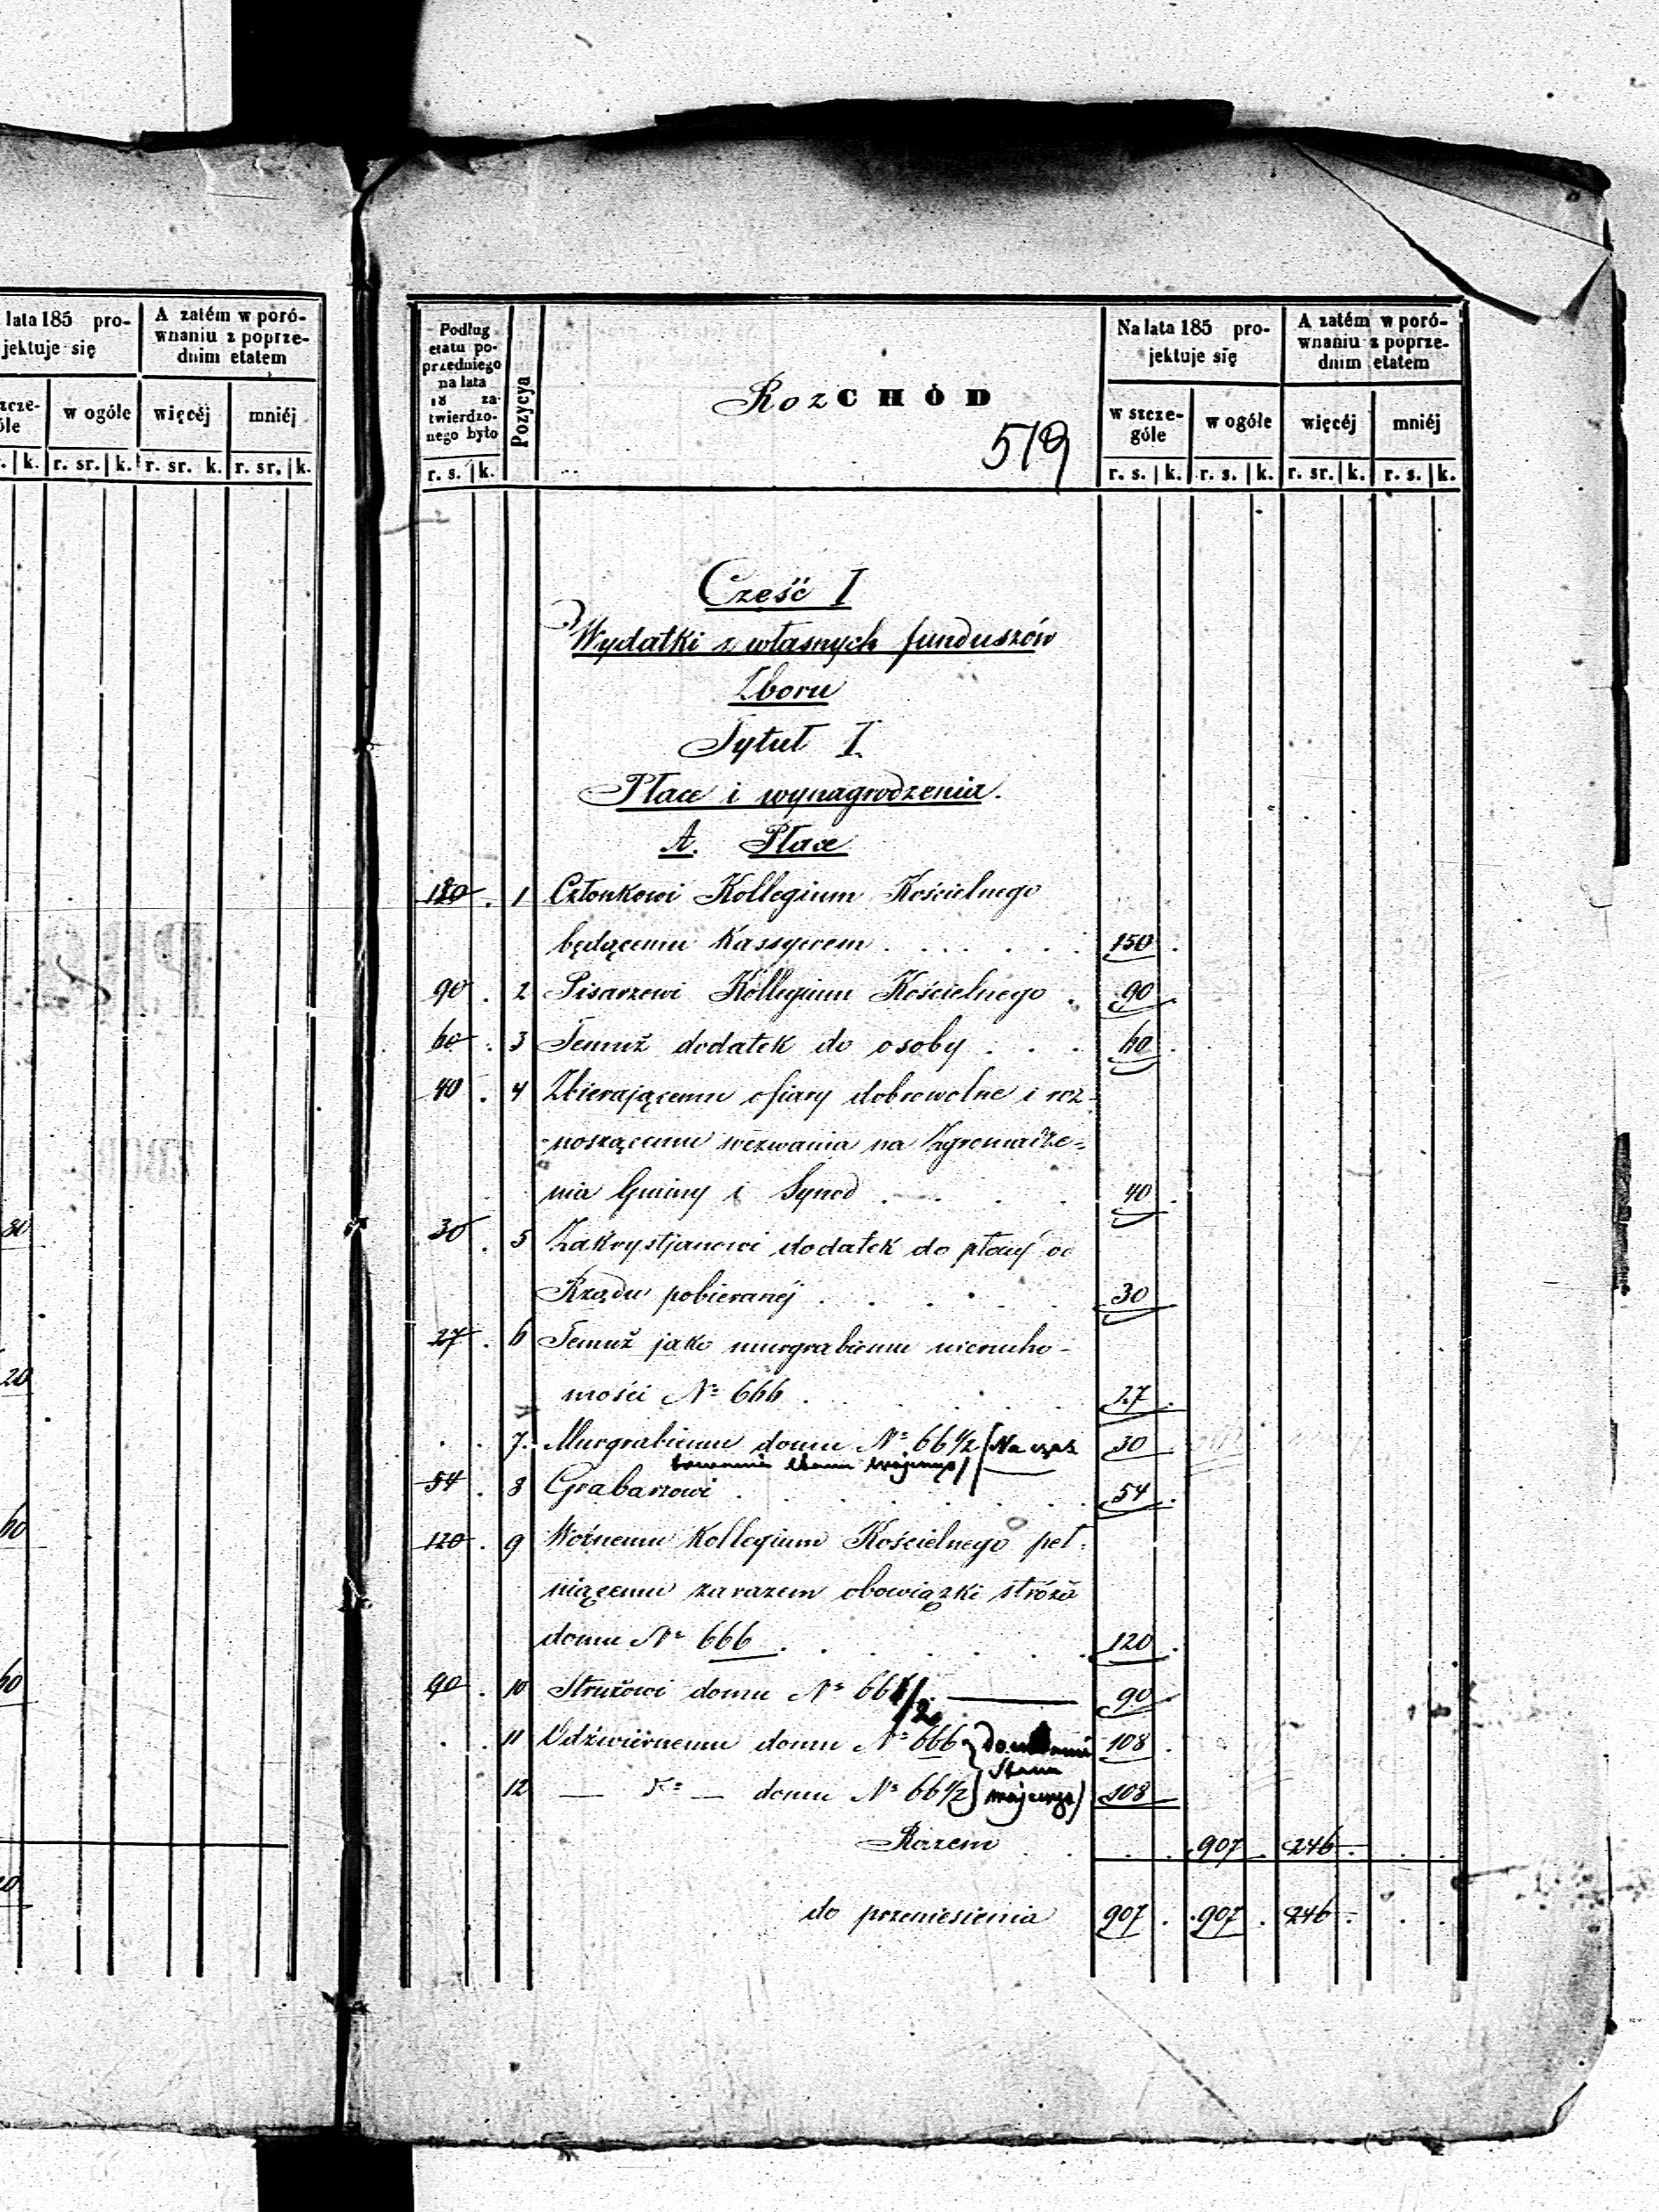 lata 185 pro-
jektuje się
A zatém w poró-
wnaniu z poprze-
dnim etatem
w ogóle
więcéj
mniéj
k. r. sr. k. r. sr. k. r. sr. k.
30
20
60
60
Podług
etatu po-
przedniego
na lata
18 za-
twierdzo-
nego było
r. s. k.
Pozycya
RozCHÓD
519
Na lata 185 pro-
jektuje się
w szcze-
góle
w ogóle
r. s. k. r. s. k.
A zatém w poró-
wnaniu z poprze-
dnim etatem
więcéj
mniéj
r. sr. k. r. s. k.
Cześć I
Wydatki z własnych funduszów
Zboru
Tytuł I.
Płace i wynagrodzenia.
A. Płace
1 Członkowi Kollegium Kościelnego
będącemu Kassyerem . . . . . . 150 .
90 . 2 Pisarzowi Kollegium Kościelnego . 90 .
60 . 3 Temuż dodatek do osoby . . . 60 .
40 . 4 Zbierającemu ofiary dobrowolne i roz-
-noszącemu wezwania na Zgromadze-
nia Gminy i Synod . . . . 40 .
30 . 5 Zakrystjanowi dodatek do płacy od
Rządu pobieranéj . . . . . . 30
27 . 6 Temuż jako murgrabiemu nierucho-
mości Nº 666 . . . . . . 27 .
. . 7. Murgrabiemu domu Nº 66 1/2 (Na czas
trwania stanu wojennego) 30
54 . 8 Grabarzowi . . . . . . . . 54 .
120 . 9 Woźnemu Kollegium Kościelnego peł-
niącemu zarazem obowiązki stróża
domu Nº 666 . . . . . . 120 .
90 . 10 Stróżowi domu Nº 66 1/2 . 90 .
. . 11 Odźwiernemu domu Nº 666 108 .
stanu
12 — Tº — domu Nº 66 1/2 wojennego) 108
Razem . . . . 907 . 246 . . .
do przeniesienia 907 . . 907 . 246 . . .